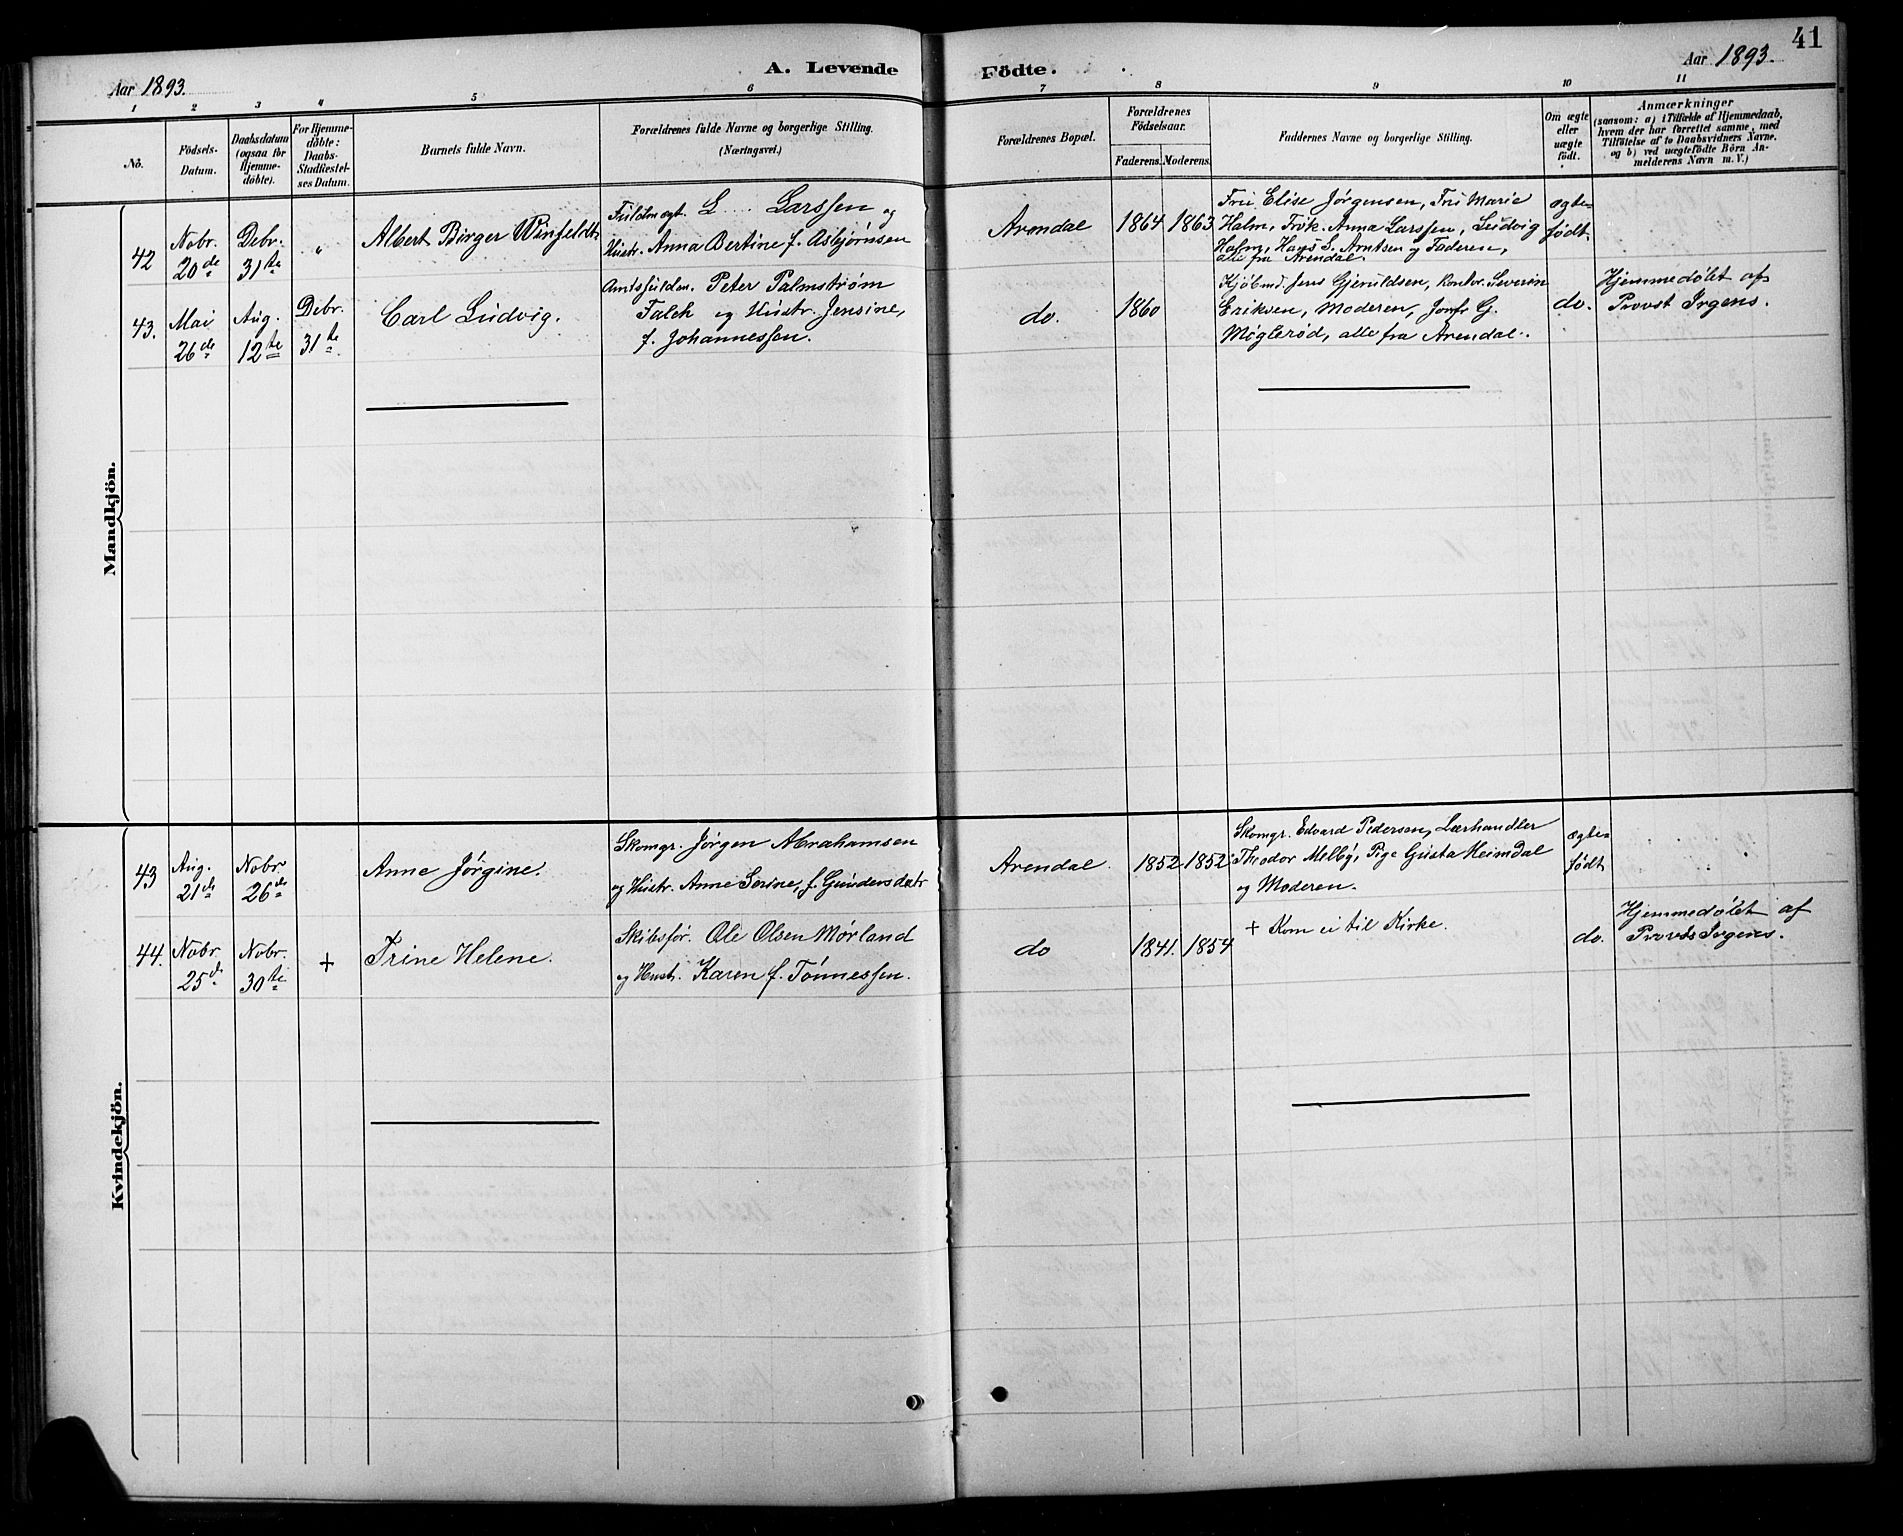 41
Aar 1893.
A. Levende Födte.
Aar 1893.
1 2 3 4 5 6 7 8 9 10 11
No.
Födsels-
Datum.
Daabsdatum
(ogsaa för
Hjemme-
döbte).
For Hjemme-
döbte:
Daabs-
Stadfæstel-
ses Datum.
Barnets fulde Navn.
Forældrenes fulde Navne og borgerlige Stilling.
(Næringsvei.)
Forældrenes Bopæl.
Forældrenes
Födselsaar.
Faderens. Moderens.
Faddernes Navne og borgerlige Stilling.
Om ægte
eller
uægte
födt.
Anmærkninger
(saasom: a) i Tilfælde af Hjemmedaab,
hvem der har forrettet samme, med
Tilföielse af to Daabsvidners Navne.
og b) ved uægtefödte Börn An-
melderens Navn m. V.)
Mandkjön.
42
Nobr.
20de
Debr.
31te
"
Albert Birger Winfeldt
Fuldmægt. L.... Larssen og
Hustr. Anna Bertine f. Asbjørnssen
Arendal
1864
1863
Fru Elise Jørgensen, Fru Marie
Holm, Frøk. Anna Larssen, Ludvig
Holm, Hans S. Arntsen og Faderen,
alle fra Arendal.
ægte-
født.
43.
Mai
26de
Aug.
12te
Debr.
31te
Carl Ludvig.
Amtsfuldm. Peter Palmstrøm
Falch og Hustr. Jensine,
f. Johannessen.
do.
1860
Kjøbmd. Jens Gjeruldsen, Kontor. Severin
Eriksen, Moderen, Jomfr G.
Møglerød, alle fra Arendal.
do.
Hjemmedøbt af
Provst Irgens.
Kvindekjön.
43
Aug.
21de
Nobr.
26de
Anne Jørgine.
Skomgr. Jørgen Abrahamsen
og Hustr. Anne Serine, f. Gundersdatr
Arendal.
1852
1852
Skomgr. Edvard Pedersen, Lærhandler
Theodor Melby, Pige Gusta Heimdal
og Moderen.
ægte-
født
44.
Nobr.
25de
Nobr.
30te
+
Trine Helene.
Skibsfør. Ole Olsen Mørland
og Hustr. Karen f. Tønnessen.
do
1841.
1854
+ Kom ei til Kirke.
do.
Hjemmedøbt af
Provst Irgens.